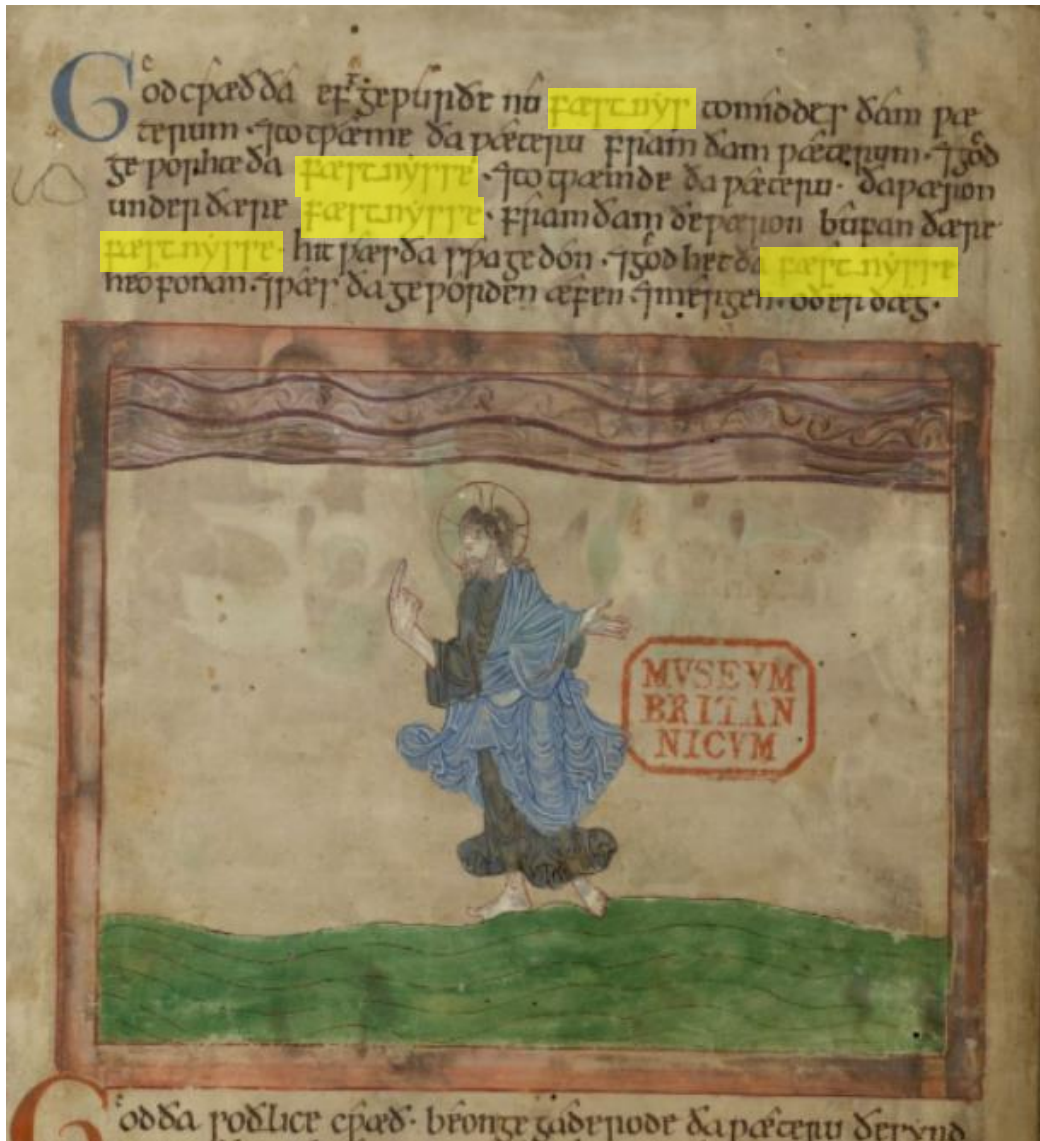 God cƿæð ða eft geƿurðe nu fæstnys tomiddes ðam ƿæ
terum · ⁊ totƿæme ða ƿæteru fram ðam ƿæterum · ⁊ god
geƿorhte ða fæstnysse · ⁊ totƿæmde ða ƿæteru · ða ƿæron
under ðære fæstnysse · fram ðam ðe ƿæron bufan ðære
fæstnysse · hit ƿæs ða sƿa gedon · ⁊ god het ða fæstnysse
heofonan · ⁊ ƿæs ða geƿorden æfen · ⁊ merigen · oðer dæg ·
MVSEVM
BRITAN
NICVM
God ða soðlice cƿæð · beon gegaderode ða ƿæteru ðe synd